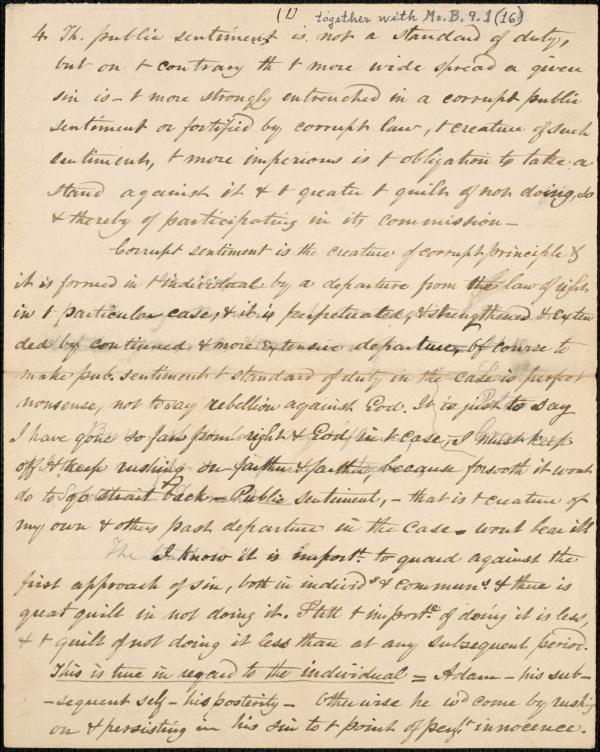 (1) together with Ms. B. 9. 1 (16)
4. Th. public sentiment is not a standard of duty,
but on t contrary th t more wide spread a given
sin is - t more strongly entrenched in a corrupt public
sentiment or fortified by corrupt law, t creature of such
sentiment, t more imperious is t obligation to take a
stand against it & t greater t guilt of not doing so
& thereby of participating in its commission -
Corrupt sentiment is the creature of corrupt principle &
it is formed in t individual by a departure from the law of right
in t particular case, & it is perpetuated, & strengthened & exten
ded by continued & more extensive departure, Of course to
make pub. sentiment t standard of duty in the case is perfect
nonsense, not to say rebellion against God. It is just to say
I have gone so far from right & God in t case, I must keep
off & keep rushing on farther & farther, because forsooth it wont
do to go strait back - Public sentiment, - that is t creature of
my own & others past departure in the case - wont bear it
I know it is import. to guard against the
first approach of sin, both in individs & communs. & there is
great guilt in not doing it. Still t importe of doing it is less,
& t guilt of not doing it less than at any subsequent period.
This is true in regard to the individual = Adam - his sub-
-sequent self - his posterity - Otherwise he wd come by rushing
on & persisting in his sin to t point of perft innocence.